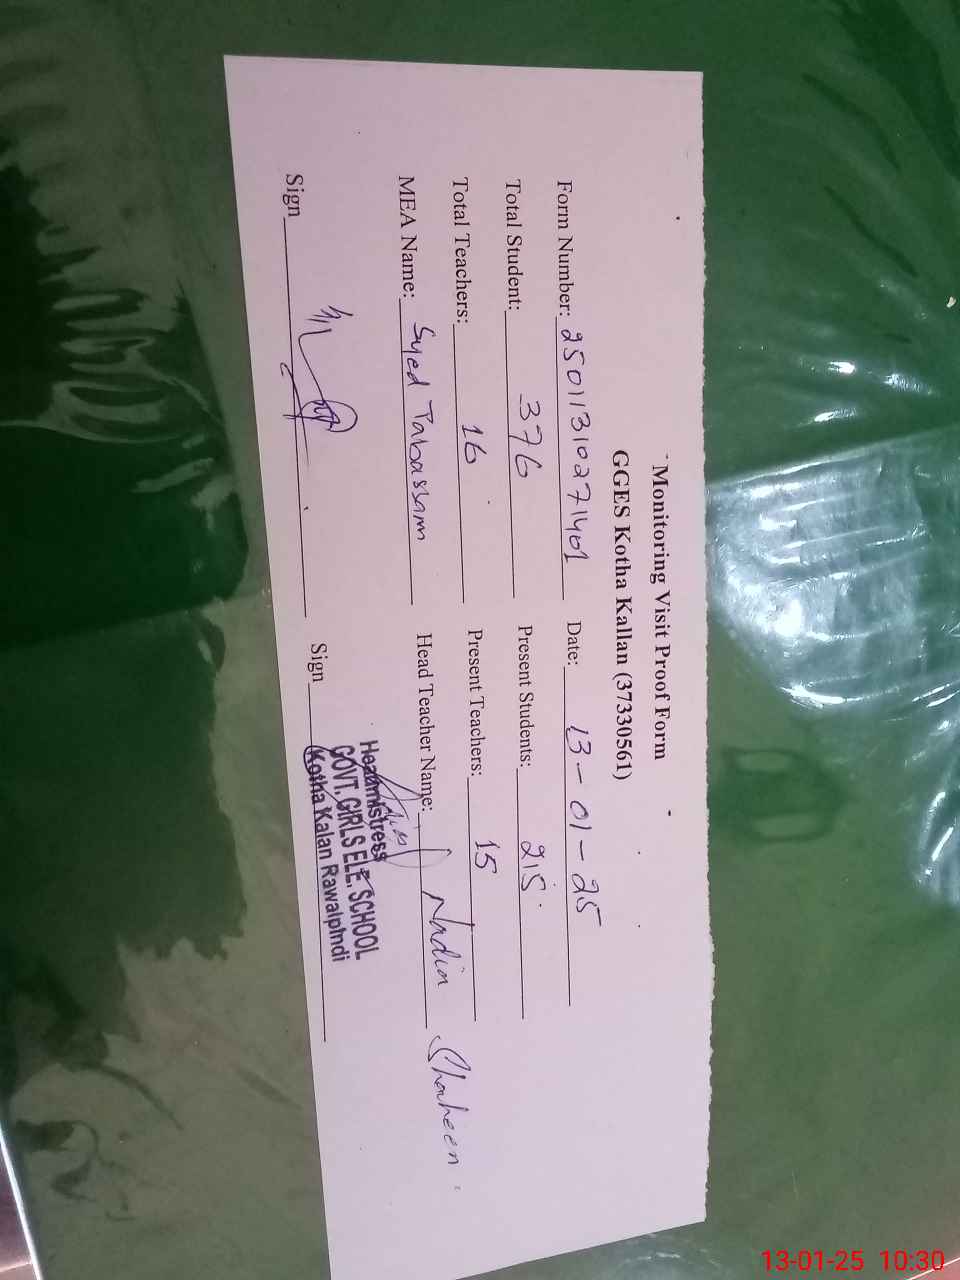 Monitoring Visit Proof Form
GGES Kotha Kallan (37330561)
Form Number: 25011310271401 Date: 13-01-25
Total Student: 376 Present Students: 215
Total Teachers: 16 Present Teachers: 15
MEA Name: Syed Tabassam Head Teacher Name: Nadia Shaheen
Sign Sign
Headmistress
GOVT. GIRLS ELE. SCHOOL
Kotha Kalan Rawalpindi
13-01-25 10:30